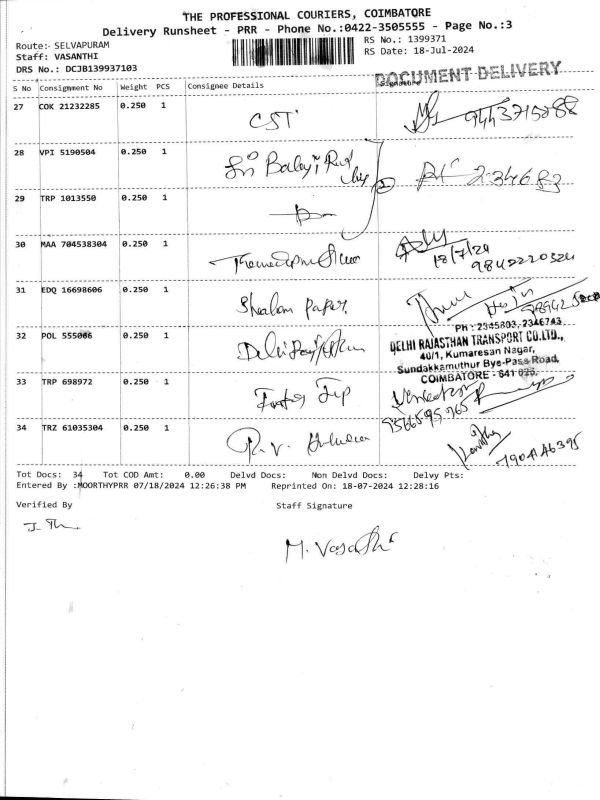 THE PROFESSIONAL COURIERS, COIMBATORE
Delivery Runsheet - PRR - Phone No.:0422-3505555 - Page No.:3
Route:- SELVAPURAM
RS No.: 1399371
Staff: VASANTHI
RS Date: 18-Jul-2024
DRS No.: DCJB139937103
DOCUMENT DELIVERY
S No Consignment No Weight PCS Consignee Details Signature
27 COK 21232285 0.250 1 CST
28 VPI 5190504 0.250 1 Sri Balaji
29 TRP 1013550 0.250 1
30 MAA 704538304 0.250 1 18/7/24
9842220324
31 EDQ 16698606 0.250 1 Shalom Paper
Ph : 2345803, 2346743
32 POL 555006 0.250 1 Delhi
DELHI RAJASTHAN TRANSPORT CO.LTD.,
40/1, Kumaresan Nagar,
Sundakkamuthur Bye-Pass Road,
COIMBATORE - 641 026.
33 TRP 698972 0.250 1
9566595965
34 TRZ 61035304 0.250 1 R.V.
7904146395
Tot Docs: 34 Tot COD Amt: 0.00 Delvd Docs: Non Delvd Docs: Delvy Pts:
Entered By :MOORTHYPRR 07/18/2024 12:26:38 PM Reprinted On: 18-07-2024 12:28:16
Verified By Staff Signature
M. Vasanthi